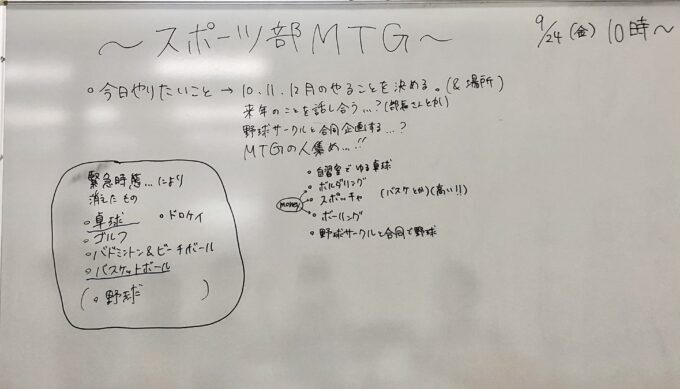 〜スポーツ部MTG〜
9/24(金) 10時〜
・今日やりたいこと → 10.11.12月のやることを決める。(&場所)
来年のことを話し合う…?(部長さんとか)
野球サークルと合同企画する…?
MTGの人集め…!!
緊急時態…により
消えたもの
・卓球 ・ドロケイ
・ゴルフ
・バドミントン&ビーチボール
・バスケットボール
(・野球)
・自習室でゆる卓球
・ボルダリング
money ・スポッチャ (バスケとか)(高い!!)
・ボーリング
・野球サークルと合同で野球